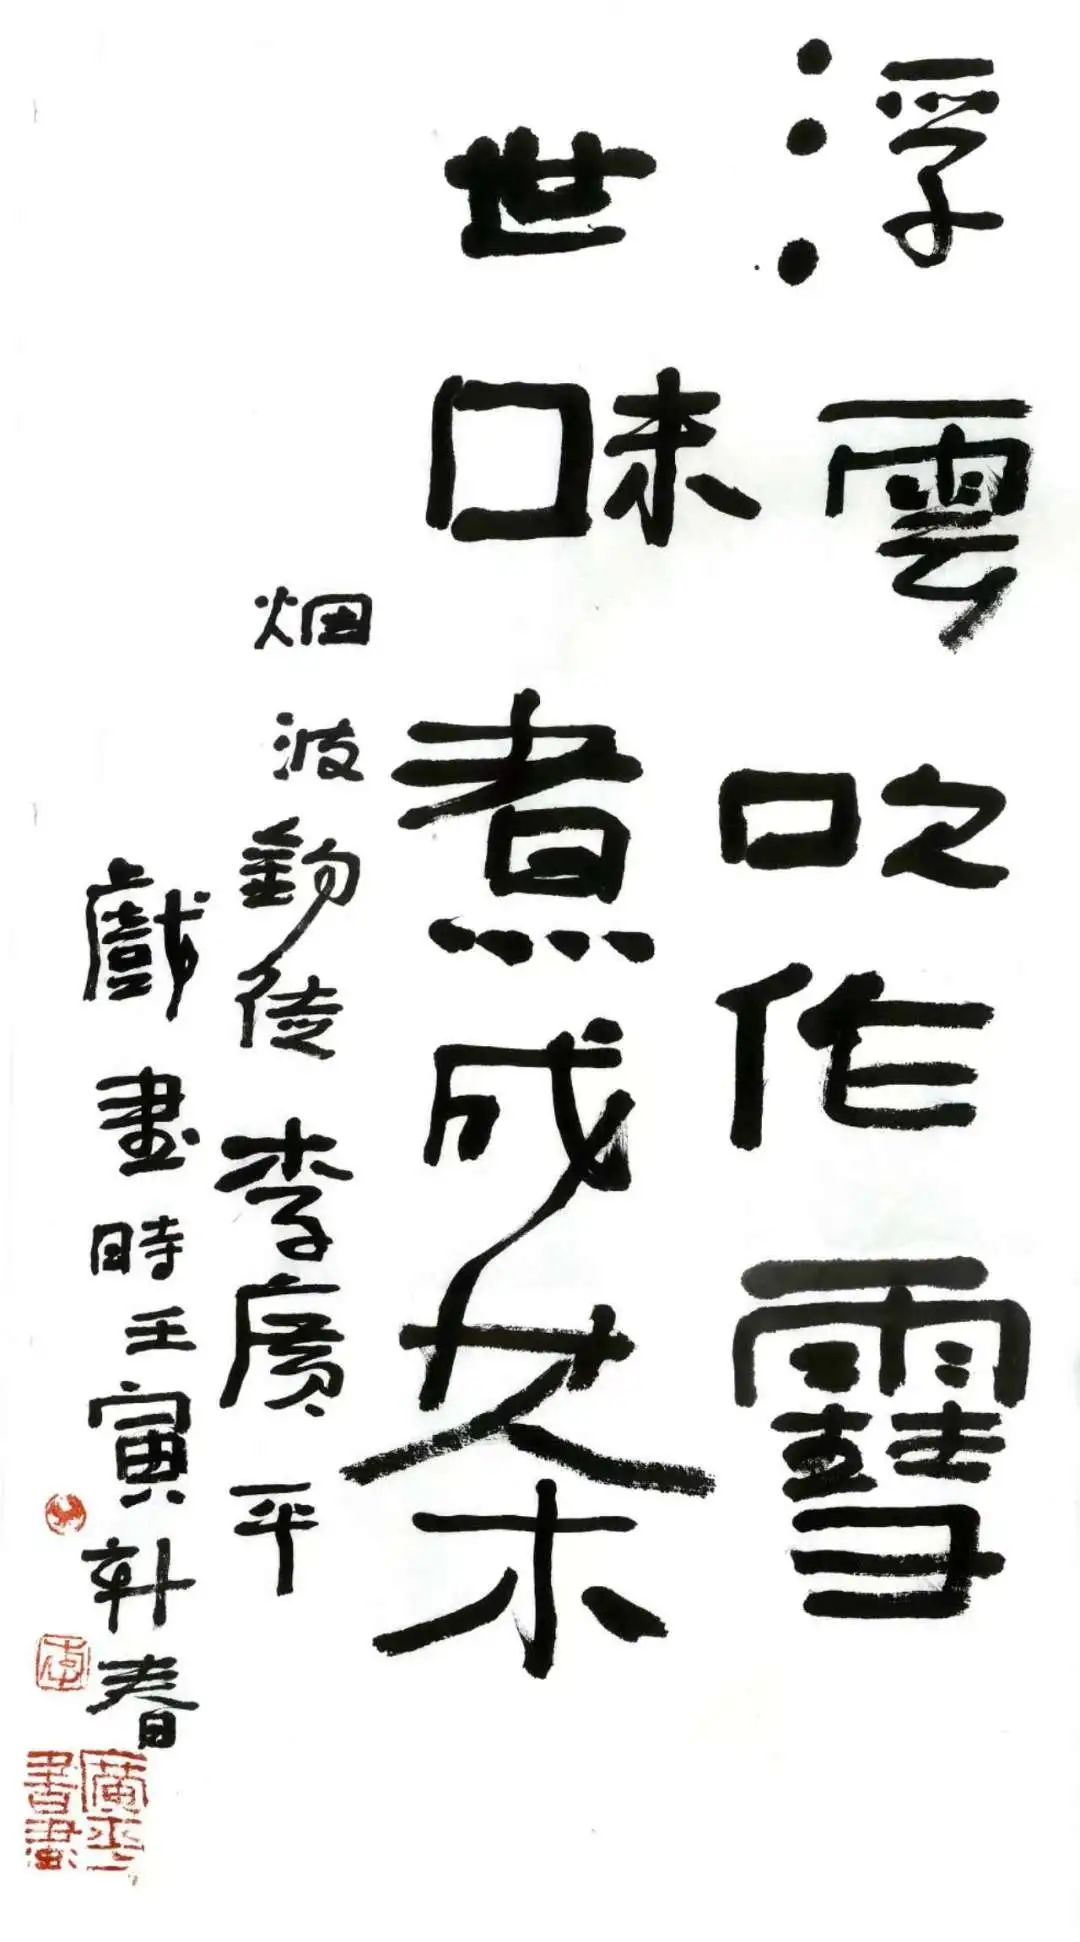 浮雲吹作雪
世味煮成茶
烟波釣徒李廣平
戲畫時壬寅新春
李
廣平
書畫